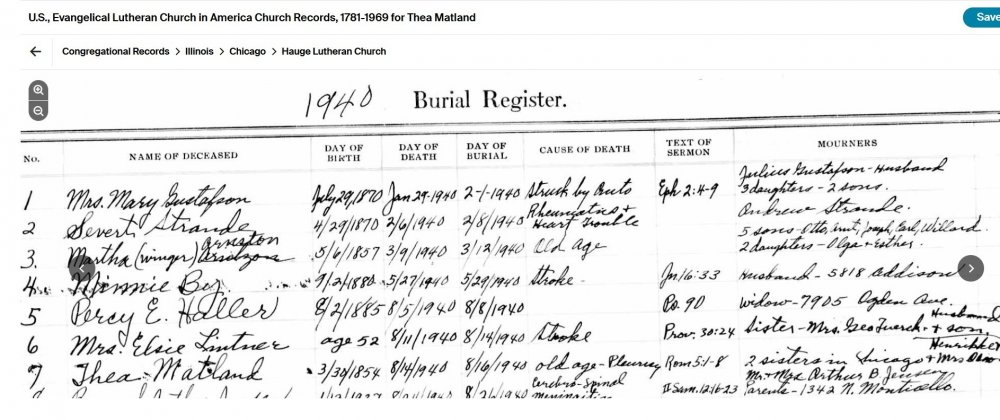 U.S., Evangelical Lutheran Church in America Church Records, 1781-1969 for Thea Matland
Save
Congregational Records > Illinois > Chicago > Hauge Lutheran Church
1940 Burial Register.
No. NAME OF DECEASED DAY OF BIRTH DAY OF DEATH DAY OF BURIAL CAUSE OF DEATH TEXT OF SERMON MOURNERS
Julius Gustafson - Husband
1 Mrs. Mary Gustafson July 29, 1870 Jan 29-1940 2-1-1940 Struck by Auto Eph 2:4-9 3 daughters - 2 sons.
2 Severt Strande 4/29/1870 2/6/1940 2/8/1940 Rheumatics + Heart Trouble Andrew Strande.
5 sons - Otto, Joseph, Earl, Willard.
3. Martha (winger) 5/6/1857 3/9/1940 3/12/1940 Old age 2 daughters - Olga + Esther.
4. Minnie 9/2/1880 5/27/1940 5/29/1940 Stroke - Jn 16:33 Husband - 5818 Addison
5 Percy E. Haller 8/2/1885 8/5/1940 8/8/1940 Ps. 90 Widow - 7905 Ogden Ave.
Husband
6 Mrs. Elsie Lintner age 52 8/11/1940 8/14/1940 Stroke Prov. 30:24 Sister - Mrs. Geo + son,
7 Thea Matland 3/30/1854 8/14/1940 8/16/1940 old age - Pleurisy Rom 5:1-8 2 sisters in Chicago + Mrs
Cerebro-Spinal Mr. + Mrs Arthur B. Jensen
II Sam. 12:16-23 Parents - 1342 N. Monticello.